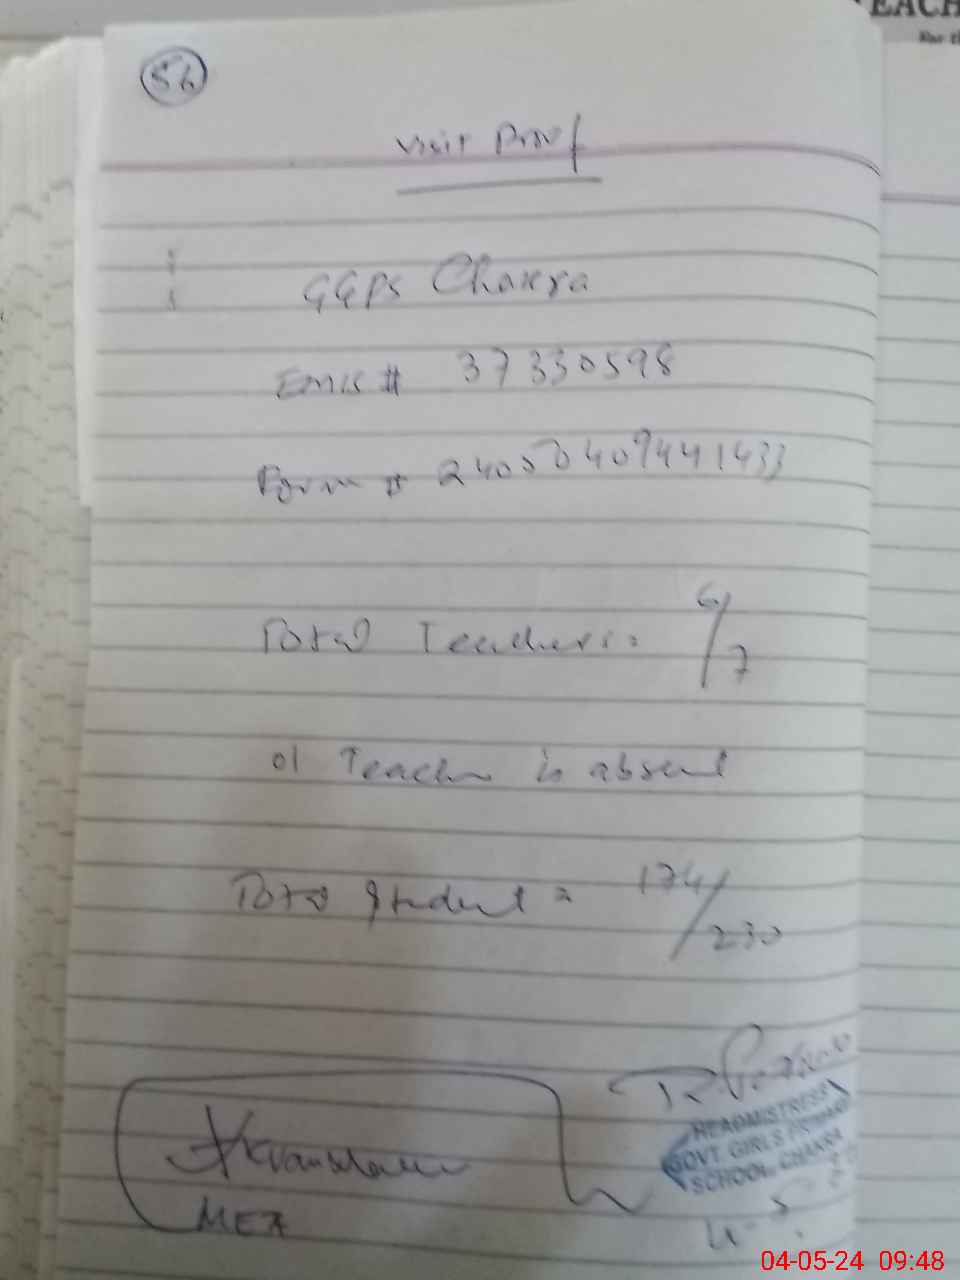 TEACH
For th
56
Visit Proof
GGPS Chakra
Emis # 37330598
Form # 24050409441433
Total Teachers: 6/7
01 Teacher is absent
Total Student = 174/230
MEA
HEADMISTRESS
GOVT. GIRLS PRIMARY
SCHOOL, CHAKRA
04-05-24 09:48